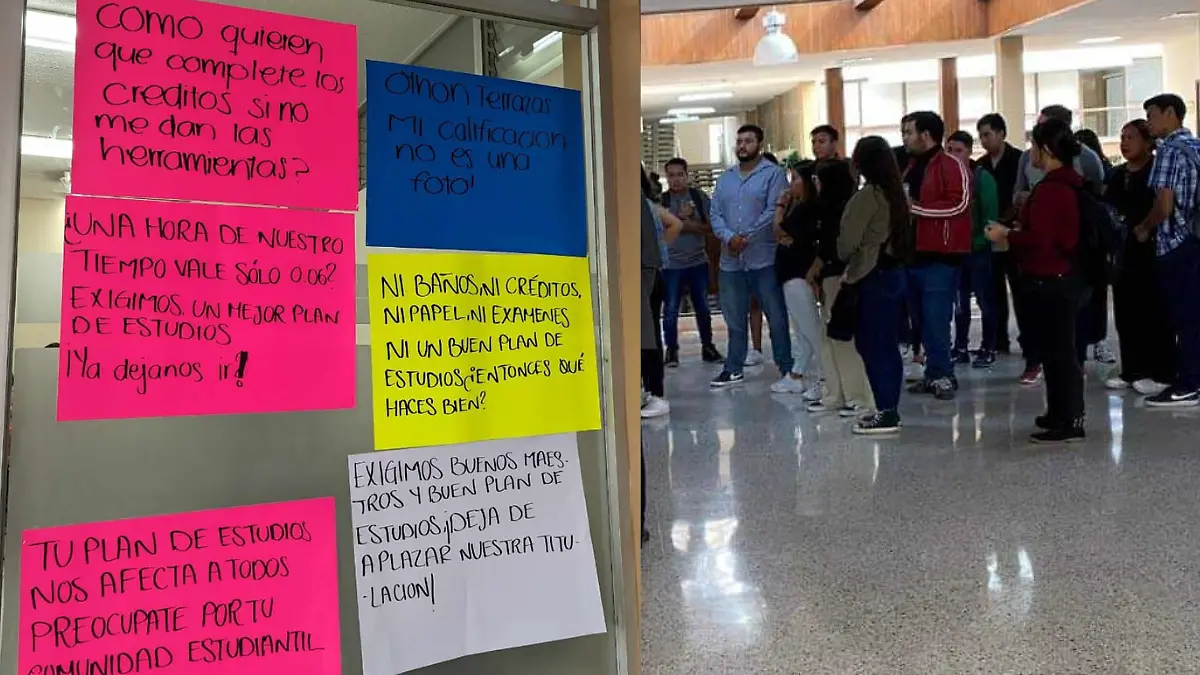 COMO quieren
que complete los
creditos si no
me dan las
herramientas?
Othon Terrazas
Mi calificacion
no es una
foto!
¡UNA HORA DE NUESTRO
TIEMPO VALE SÓLO 0.06?
EXIGIMOS. UN MEJOR PLAN
DE ESTUDIOS
¡Ya dejanos ir!
NI BAÑOS,NI CRÉDITOS,
NI PAPEL,NI EXAMENES
NI UN BUEN PLAN DE
ESTUDIOS¿ENTONCES QUÉ
HACES BIEN?
EXIGIMOS BUENOS MAES-
TROS Y BUEN PLAN DE
ESTUDIOS,¡DEJA DE
APLAZAR NUESTRA TITU-
-LACION!
TU PLAN DE ESTUDIOS
NOS AFECTA A TODOS
PREOCUPATE POR TU
COMUNIDAD ESTUDIANTIL